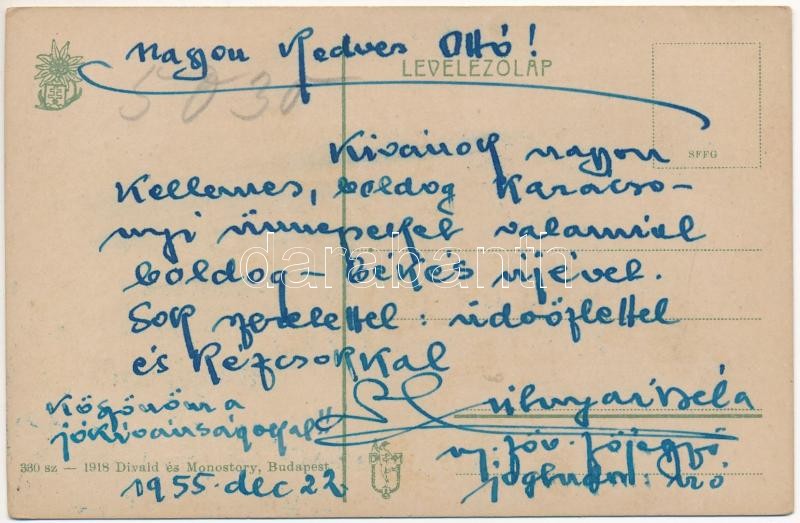 Nagyon Kedves Ottó!
LEVELEZŐLAP
5030
SFFG
Kivánok nagyon
Kellemes, boldog Karácso-
nyi ünnepeket valamint
boldog - békés újévet.
Sok szeretettel: üdvözlettel
és Kézcsokkal
Béla
Köszönöm a
jókivánságokat!
330 sz — 1918 Divald és Monostory, Budapest
1955. dec 22.
ny. főjegyző
író
darabanth